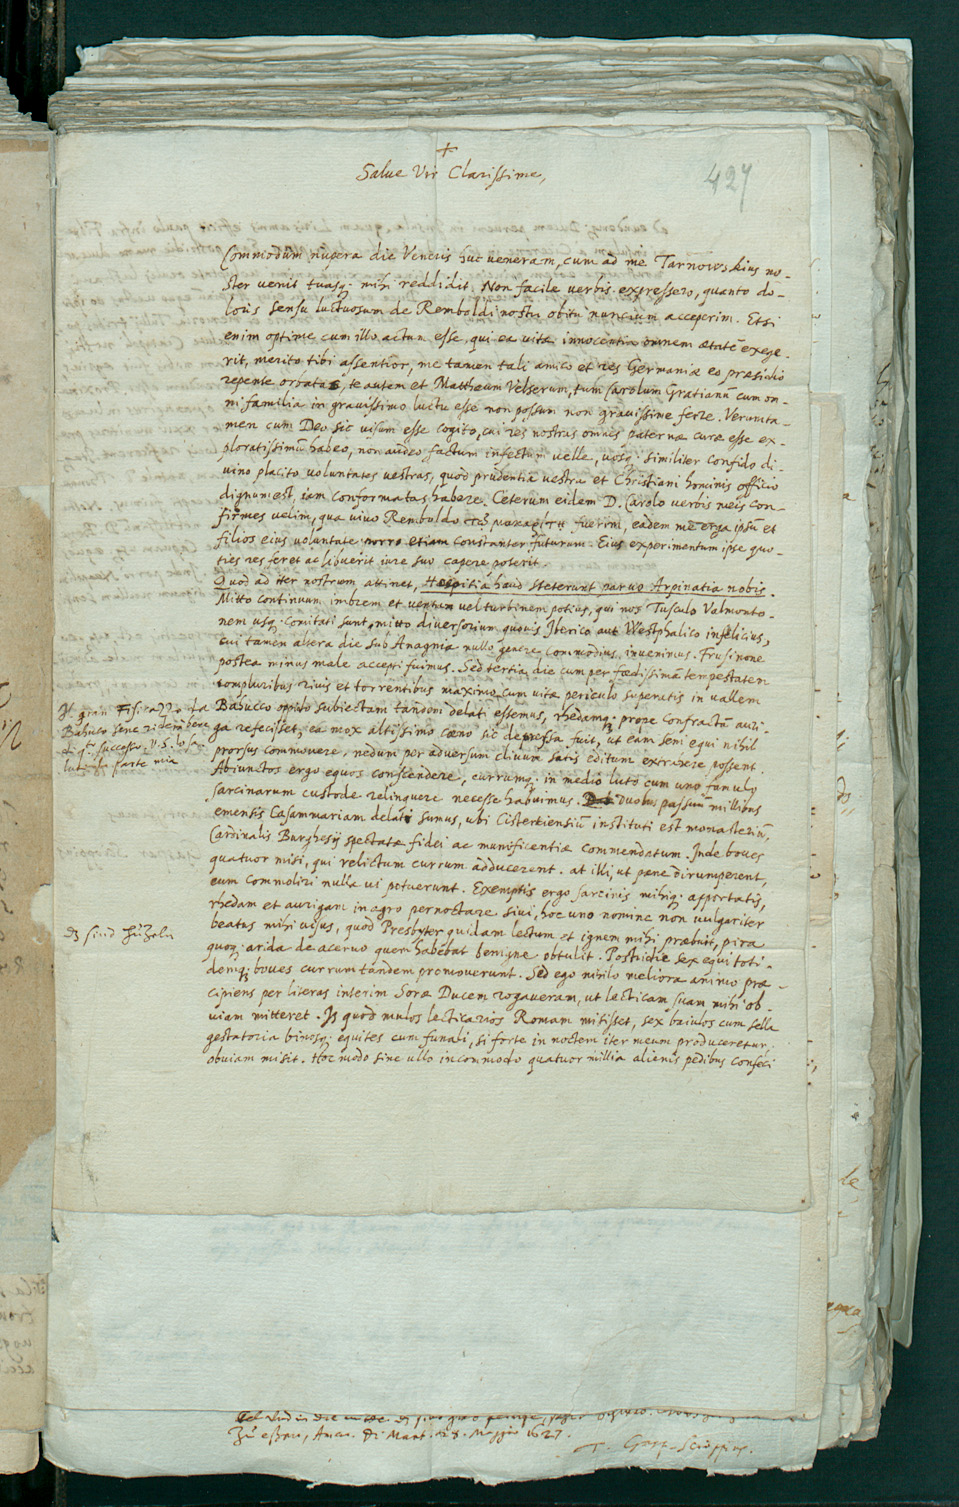 +
Salue Vir Clarissime,
427
Commodum nupera die Veneris huc veneram, cum ad me Tarnovoskius no-
ster venit tuasq; mihi reddidit. Non facile verbis expressero, quanto do-
loris sensu luctuosum de Remboldi nostri obitu nuncium acceperim. Etsi
enim optime cum illo actum esse, qui ea vitæ innocentia omnem ætatē exege-
rit, merito tibi assentior, me tamen tali amico et res Germaniæ eo præsidio
repente orbatas, te autem et Mattheum Velserum, tum Carolum Gratianū cum om-
ni familia in gravissimo luctu esse non possum non gravissime ferre. Verumta-
men cum Deo sic visum esse cogito, cui res nostras omnes paternæ curæ esse ex-
ploratissimū habeo, non audeo factum infectum velle, vosq; similiter confido di-
vino placito voluntates vestras, quod prudentia vestra et Christiani hominis officio
dignum est, iam conformatas habere. Ceterum eidem D. Carolo verbis meis con-
firmes velim, qua vivo Remboldo τῷ μακαρίτῃ fuerim, eadem me erga ipsū et
filios eius voluntate porro etiam constanter futurum. Eius experimentum ipse quo-
ties res feret ac libuerit iure suo capere poterit.
Quod ad iter nostrum attinet, Hospitia haud steterunt parvo Arpinatia nobis.
Mitto continuum imbrem et ventum vel turbinem potius, qui nos Tusculo Valmonto-
nem usq; comitati sunt, mitto diversorium quovis Iberico aut Westphalico infelicius,
cui tamen altera die sub Anagnia nullo genere commodius invenimus. Frusinone
postea minus male accepti fuimus. Sed tertia die cum per fœdissimā tempestatem
compluribus rivis et torrentibus maximo cum vitæ periculo superatis in vallem
Babucco oppido subiectam tandem delati essemus, rhedamq; prope confractū auri-
ga refecisset, ea mox altissimo cœno sic depressa fuit, ut eam seni equi nihil
prorsus commovere, nedum per adversum clivum satis editum extrahere possent.
Abiunctos ergo equos conscendere, currumq; in medio luto cum uno famulo
sarcinarum custode relinquere necesse habuimus. duobus passuum millibus
emensis Casammariam delati sumus, ubi Cisterciensiū instituti est monasteriū,
Cardinalis Burghesij spectatæ fidei ac munificentiæ commendatum. Inde boves
quatuor misi, qui relictum currum adducerent. at illi, ut pæne dirumperent,
eum commoliri nulla vi potuerunt. Exemptis ergo sarcinis mihiq; apportatis,
rhedam et aurigam in agro pernoctare sivi, hoc uno nomine non vulgariter
beatus mihi visus, quod Presbyter quidam lectum et ignem mihi præbuit, pira
quoq; arida de acervo quem habebat benigne obtulit. Postridie sex equi toti-
demq; boves currum tandem promoverunt. Sed ego nihilo meliora animo præ-
cipiens per literas interim Soræ Ducem rogaveram, ut lecticam suam mihi ob-
viam mitteret. Is quod mulos lecticarios Romam misisset, sex baiulos cum sella
gestatoria binosq; equites cum funali, si forte in noctem iter meum produceretur
obviam misit. Hoc modo sine ullo incommodo quatuor millia alienis pedibus confeci
Il gran
Babuco sene
di successo V.S. lo
la parte mia
dz sind Hützeln
1627.
Gasp. Scioppius.